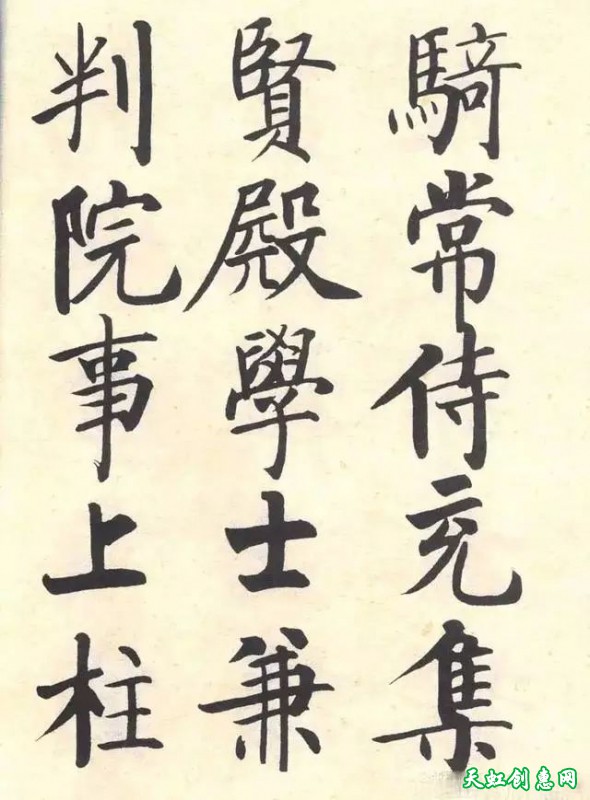 騎常侍充集
賢殿學士兼
判院事上柱
天虹创意网